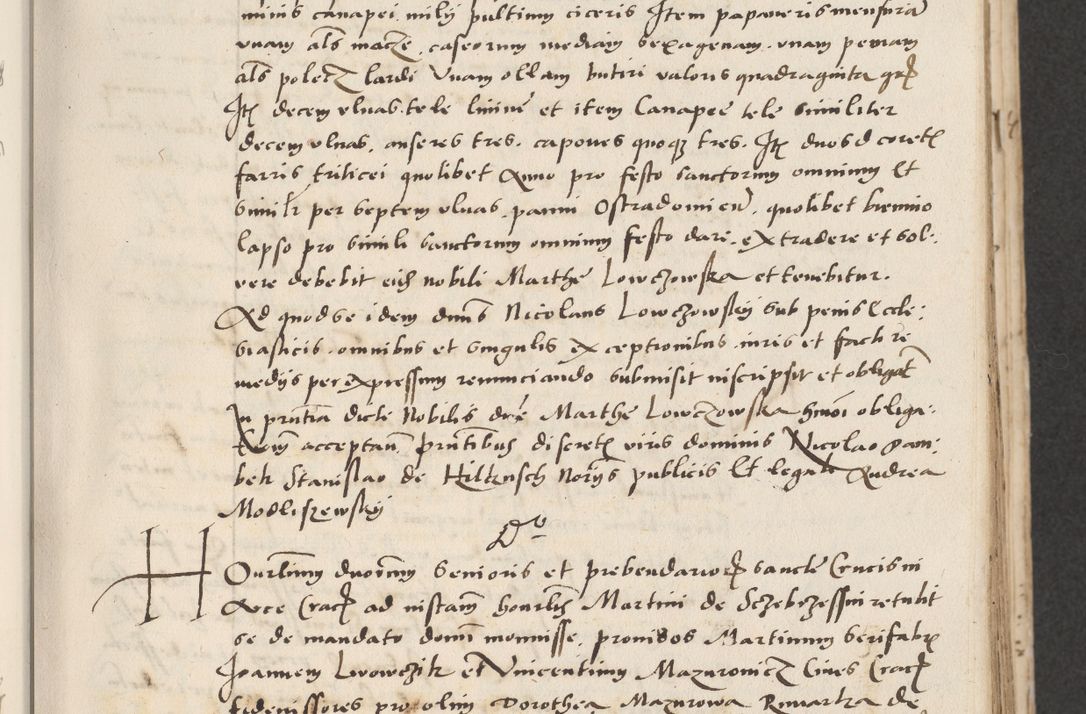 minis canapei milij pultium ciceris Item papaveris mensura
unam als macze, caseorum mediam sexagenam, unam pernam
als polecz lardi Unam ollam butiri valoris quadraginta gr
Itz decem ulnas tele linine et item Canapee tele similiter
decem ulnas, anseres tres, capones quoqz tres. Itz duos d coretz
farris triticei quolibet Anno pro festo sanctorum omnium Et
similr per septem ulnas panni Ostradomien, quolibet biennio
lapso pro simili sanctorum omnium festo dare, extradere et sol-
vere debebit eid nobili Marthe Lowczowska et tenebitur.
Ad quod se idem dnus Nicolaus Lowczowskij sub penis Eccle-
siasticis omnibus et singulis exceptionibus iuris et facti re
medijs per expressum renunciando submisit inscripsit et obligat
In pntia dicte Nobilis dne Marthe Lowczowska hmoi obliga-
tionem acceptan. Pntibus discretis viris dominis Nicolao Gam-
bek Stanislao de Hilknsch Norijs publicis Et legali Andrea
Modliszewskij
Do
Hourlium duorum Senioris et prebendarior sancte Crucis in
Arce Crac ad instam honrlis Martini de Sczebrzessin retulit
se de mandato domi monuisse, providos Martinum Serifabr
Joannem Lwowczik et Vincentium Mazurowicz Cives Crac
fideiussores pro olim Dorothea Mazurowa Rimarka de